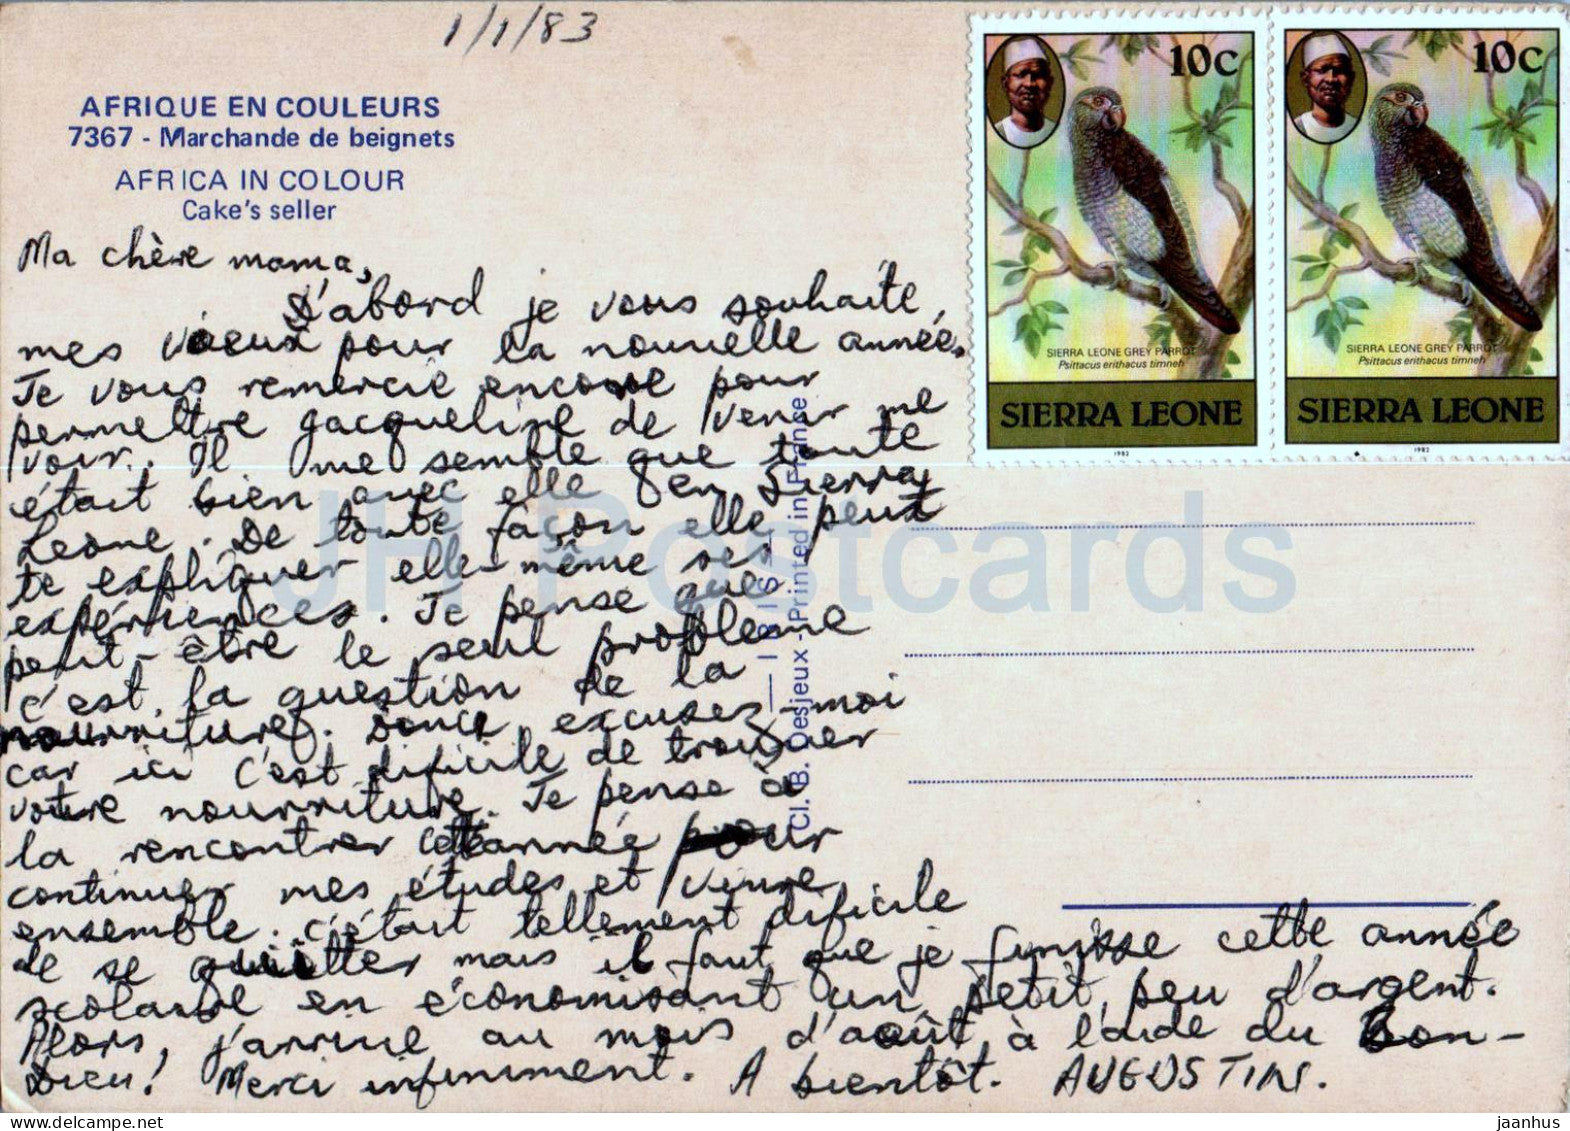 1/1/83
AFRIQUE EN COULEURS
7367 - Marchande de beignets
AFRICA IN COLOUR
Cake's seller
10c
SIERRA LEONE GREY PARROT
Psittacus erithacus timneh
SIERRA LEONE
1982
10c
SIERRA LEONE GREY PARROT
Psittacus erithacus timneh
SIERRA LEONE
1982
Ma chère mama,
D'abord je vous souhaite,
mes voeux pour la nouvelle année.
Je vous remercie encore pour
permettre Jacqueline de venir me
voir. Il me semble que toute
était bien avec elle en Sierra
Leone. De toute façon elle peut
te expliquer elle-même ses
expériences. Je pense que
peut-être le seul problème
c'est la question de la
nourriture. Donc excusez-moi
car ici c'est dificile de trouver
votre nourriture. Je pense à
la rencontrer cette année pour
continuer mes études et vivre
ensemble. C'était tellement dificile
de se quitter mais il faut que je finisse cette année
scolaire en économisant un petit peu d'argent.
Alors, j'arrive au mois d'août, à l'aide du Bon-
Dieu! Merci infiniment. A bientôt. AUGUSTIN.
Cl. B. Desjeux - Printed in France
— IBIS —
JH Postcards
jaanhus